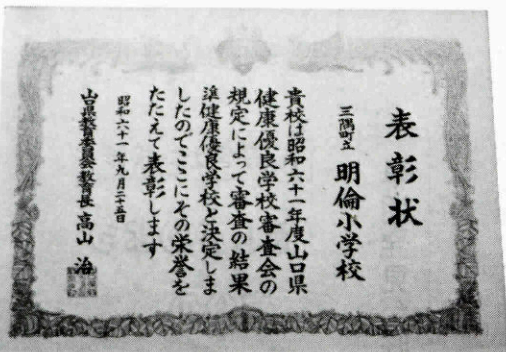 表彰状
三隅町立 明倫小学校
貴校は昭和六十一年度山口県
健康優良学校審査会の
規定によって審査の結果
準健康優良学校と決定しま
したのでここにその栄誉を
たたえて表彰します
昭和六十一年九月二十五日
山口県教育委員会教育長 高山 治